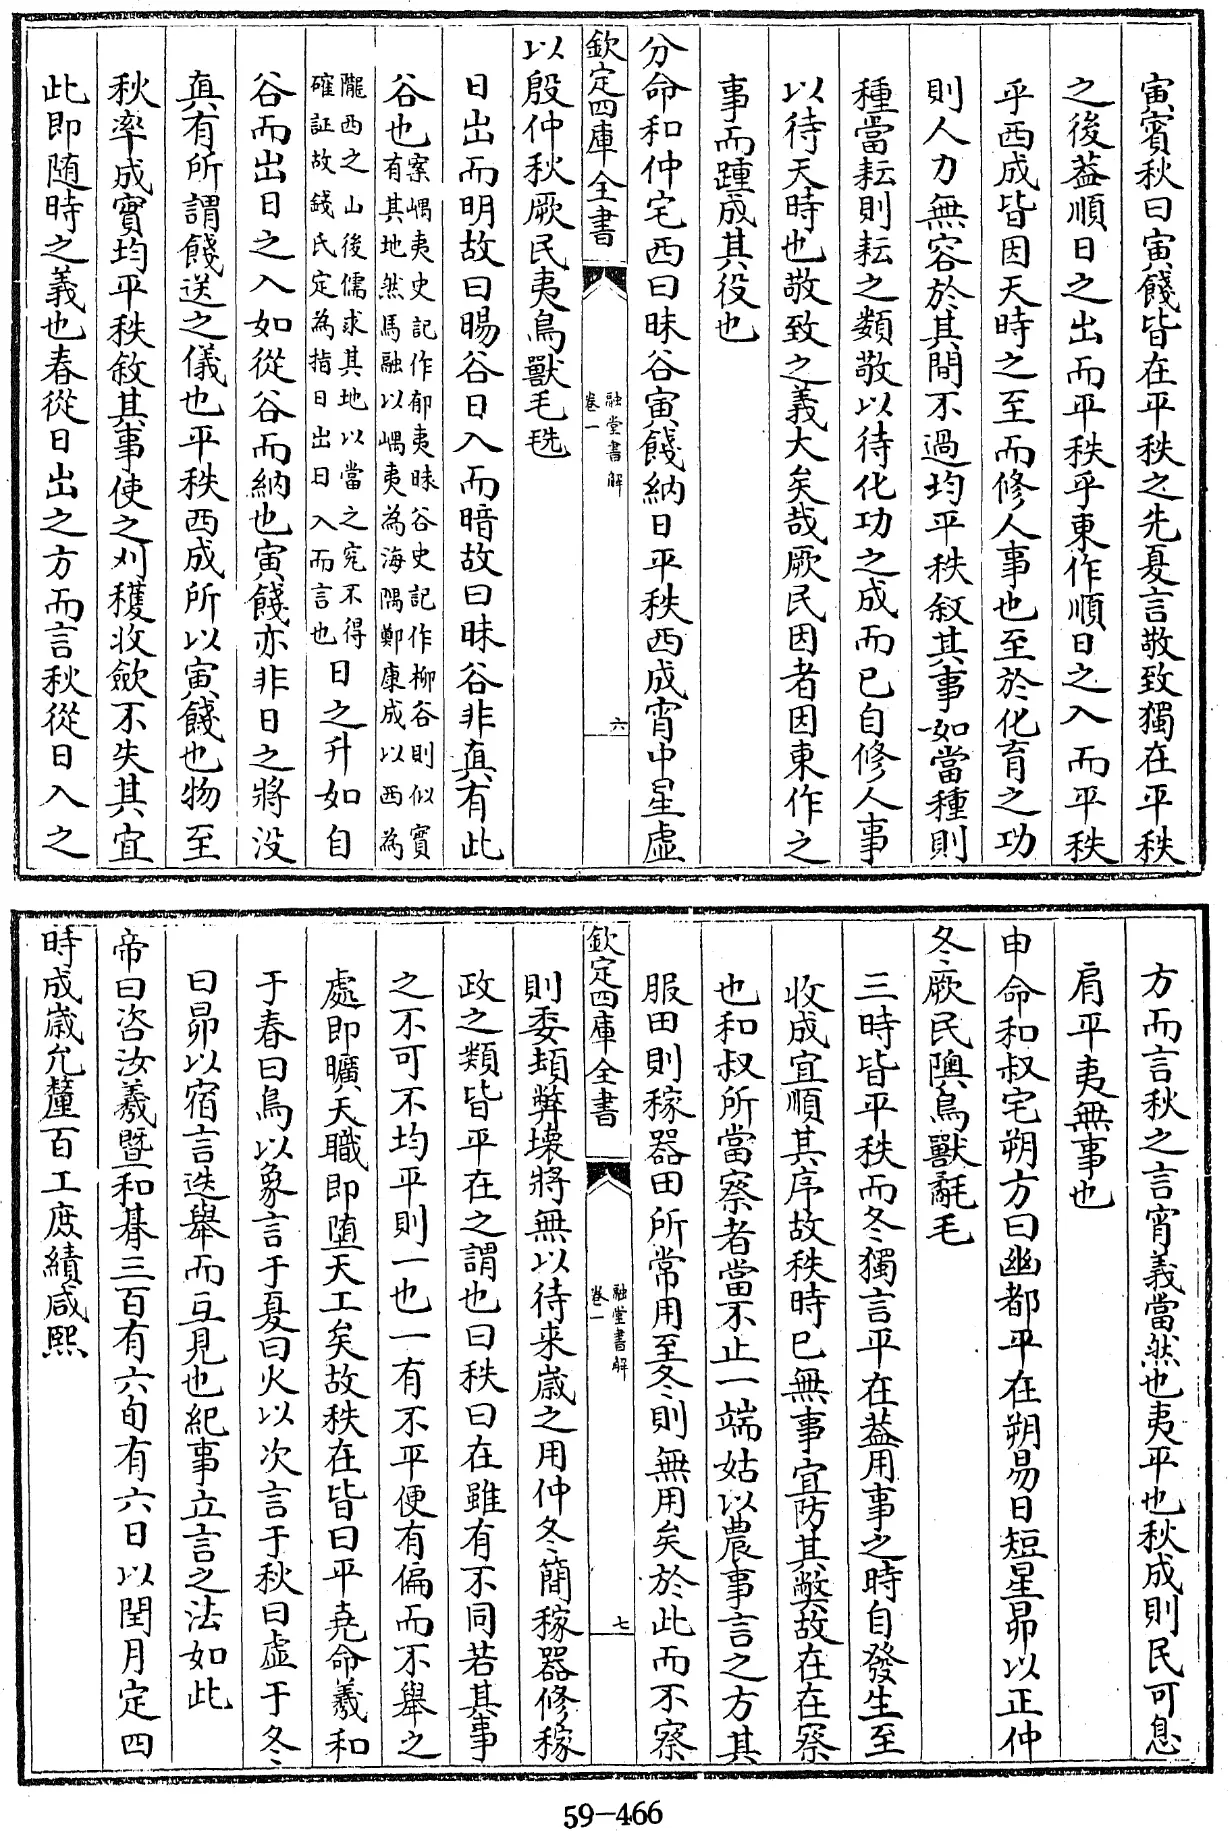 寅賓秋曰寅餞皆在平秩之先夏言敬致獨在平秩
之後葢順日之出而平秩乎東作順日之入而平秩
乎西成皆因天時之至而修人事也至於化育之功
則人力無容於其間不過均平秩叙其事如當種則
種當耘則耘之類敬以待化功之成而已自修人事
以待天時也敬致之義大矣哉厥民因者因東作之
事而踵成其役也
分命和仲宅西曰昧谷寅餞納日平秩西成宵中星虛
欽定四庫全書
融堂書解
卷一
六
以殷仲秋厥民夷鳥獸毛毨
日出而明故曰暘谷日入而暗故曰昧谷非真有此
谷也案嵎夷史記作郁夷昧谷史記作柳谷則似實
有其地然馬融以嵎夷為海隅鄭康成以西為
隴西之山後儒求其地以當之究不得
確証故錢氏定為指日出日入而言也日之升如自
谷而出日之入如從谷而納也寅餞亦非日之將没
真有所謂餞送之儀也平秩西成所以寅餞也物至
秋率成實均平秩敘其事使之刈穫收斂不失其宜
此即随時之義也春從日出之方而言秋從日入之
方而言秋之言宵義當然也夷平也秋成則民可息
肩平夷無事也
申命和叔宅朔方曰幽都平在朔易日短星昴以正仲
冬厥民隩鳥獸氄毛
三時皆平秩而冬獨言平在葢用事之時自發生至
收成宜順其序故秩時已無事宜防其斃故在在察
也和叔所當察者當不止一端姑以農事言之方其
服田則稼器田所常用至冬則無用矣於此而不察
欽定四庫全書
融堂書解
卷一
七
則委頓弊壊將無以待来歲之用仲冬簡稼器修稼
政之類皆平在之謂也曰秩曰在雖有不同若其事
之不可不均平則一也一有不平便有偏而不舉之
處即曠天職即墮天工矣故秩在皆曰平堯命羲和
于春曰鳥以象言于夏曰火以次言于秋曰虛于冬
曰昴以宿言迭舉而互見也紀事立言之法如此
帝曰咨汝羲暨和朞三百有六旬有六日以閏月定四
時成歲允釐百工庶績咸熙
59-466